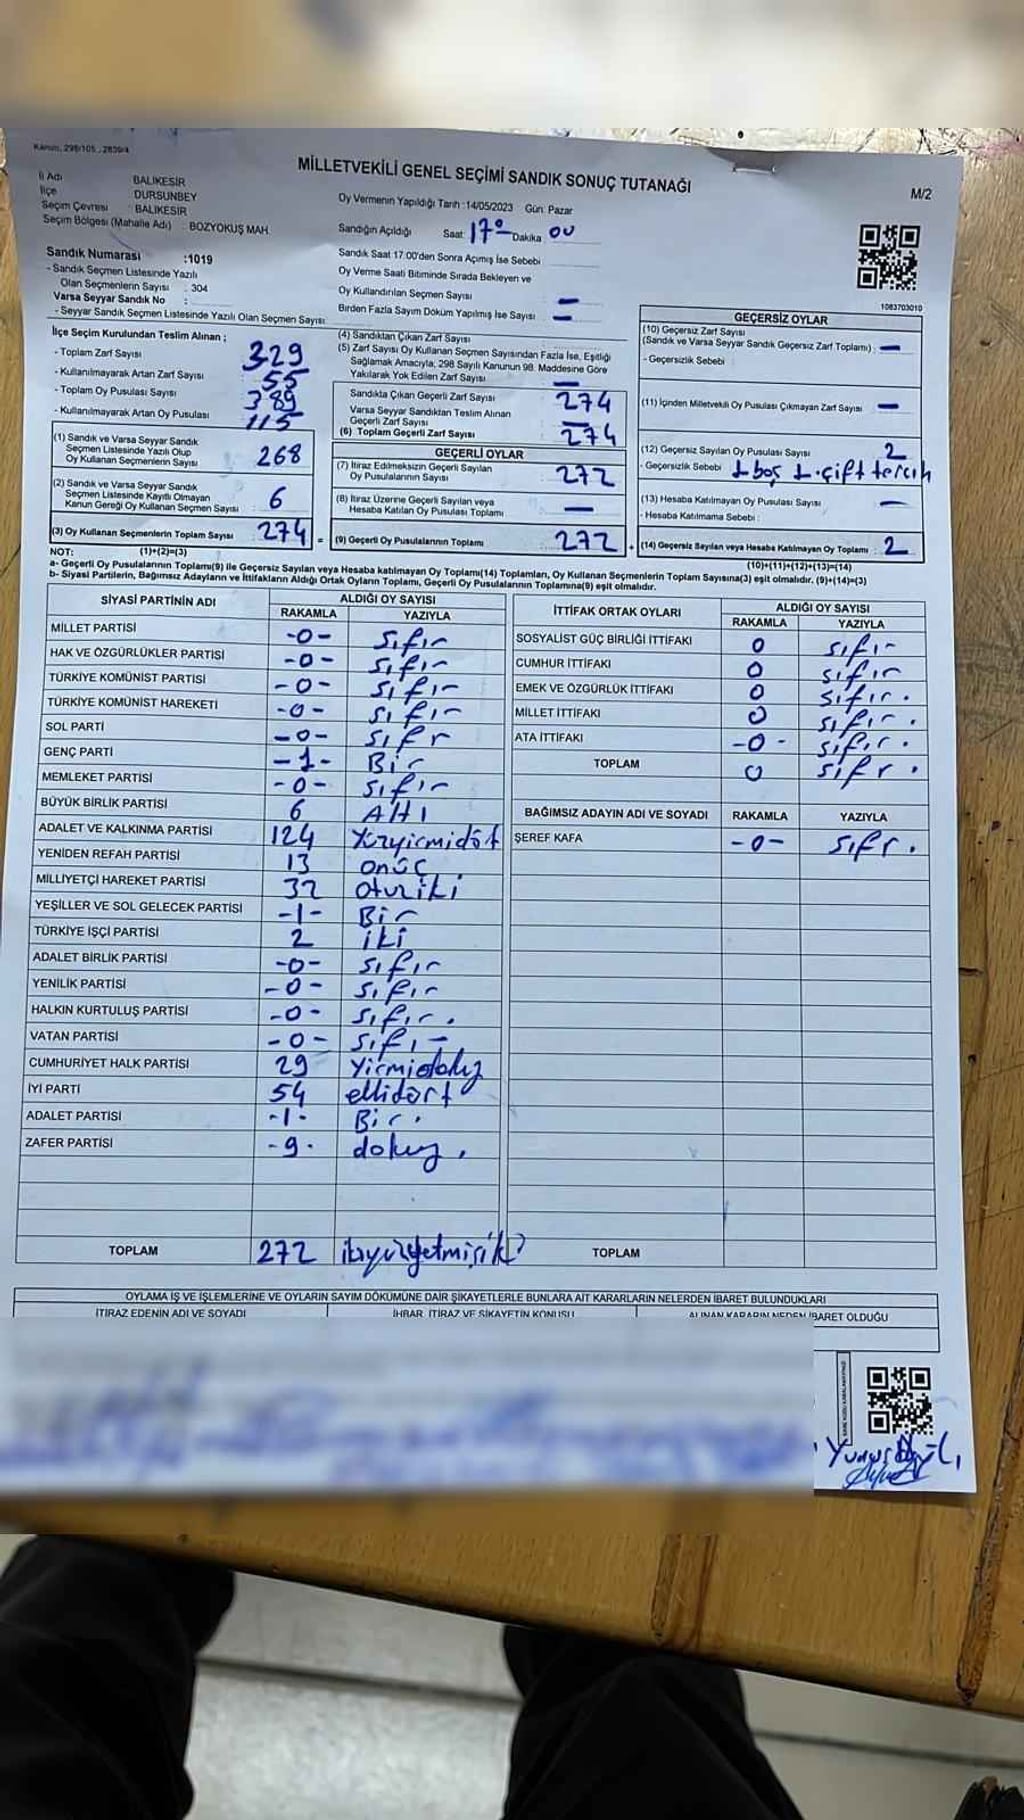 Kanun, 298/105 , 2839/4
MİLLETVEKİLİ GENEL SEÇİMİ SANDIK SONUÇ TUTANAĞI
M/2
İl Adı BALIKESİR
İlçe DURSUNBEY
Seçim Çevresi : BALIKESİR
Seçim Bölgesi (Mahalle Adı) : BOZYOKUŞ MAH.
Oy Vermenin Yapıldığı Tarih :14/05/2023 Gün: Pazar
Sandığın Açıldığı Saat: 17⁰⁰ Dakika 00
Sandık Numarası :1019
- Sandık Seçmen Listesinde Yazılı
Olan Seçmenlerin Sayısı : 304
Varsa Seyyar Sandık No :
- Seyyar Sandık Seçmen Listesinde Yazılı Olan Seçmen Sayısı:
Sandık Saat 17:00'den Sonra Açımış İse Sebebi
Oy Verme Saati Bitiminde Sırada Bekleyen ve
Oy Kullandırılan Seçmen Sayısı –
Birden Fazla Sayım Döküm Yapılmış İse Sayısı –
1083703010
İlçe Seçim Kurulundan Teslim Alınan ;
- Toplam Zarf Sayısı 329
- Kullanılmayarak Artan Zarf Sayısı 55
- Toplam Oy Pusulası Sayısı 389
- Kullanılmayarak Artan Oy Pusulası 115
(1) Sandık ve Varsa Seyyar Sandık
Seçmen Listesinde Yazılı Olup
Oy Kullanan Seçmenlerin Sayısı 268
(2) Sandık ve Varsa Seyyar Sandık
Seçmen Listesinde Kayıtlı Olmayan
Kanun Gereği Oy Kullanan Seçmen Sayısı 6
(3) Oy Kullanan Seçmenlerin Toplam Sayısı 274 =
(4) Sandıktan Çıkan Zarf Sayısı
(5) Zarf Sayısı Oy Kullanan Seçmen Sayısından Fazla İse, Eşitliği
Sağlamak Amacıyla, 298 Sayılı Kanunun 98. Maddesine Göre
Yakılarak Yok Edilen Zarf Sayısı –
Sandıkta Çıkan Geçerli Zarf Sayısı 274
Varsa Seyyar Sandıktan Teslim Alınan
Geçerli Zarf Sayısı –
(6) Toplam Geçerli Zarf Sayısı 274
GEÇERLİ OYLAR
(7) İtiraz Edilmeksizin Geçerli Sayılan
Oy Pusulalarının Sayısı 272
(8) İtiraz Üzerine Geçerli Sayılan veya
Hesaba Katılan Oy Pusulası Toplamı –
(9) Geçerli Oy Pusulalarının Toplamı 272 +
GEÇERSİZ OYLAR
(10) Geçersiz Zarf Sayısı
(Sandık ve Varsa Seyyar Sandık Geçersiz Zarf Toplamı) : –
- Geçersizlik Sebebi :
(11) İçinden Milletvekili Oy Pusulası Çıkmayan Zarf Sayısı –
(12) Geçersiz Sayılan Oy Pusulası Sayısı 2
- Geçersizlik Sebebi : 1 boş 1. çift tercih
(13) Hesaba Katılmayan Oy Pusulası Sayısı –
- Hesaba Katılmama Sebebi :
(14) Geçersiz Sayılan veya Hesaba Katılmayan Oy Toplamı : 2
NOT: (1)+(2)=(3) (10)+(11)+(12)+(13)=(14)
a- Geçerli Oy Pusulalarının Toplamı(9) ile Geçersiz Sayılan veya Hesaba katılmayan Oy Toplamı(14) Toplamları, Oy Kullanan Seçmenlerin Toplam Sayısına(3) eşit olmalıdır. (9)+(14)=(3)
b- Siyasi Partilerin, Bağımsız Adayların ve İttifakların Aldığı Ortak Oyların Toplamı, Geçerli Oy Pusulalarının Toplamına(9) eşit olmalıdır.
SİYASİ PARTİNİN ADI ALDIĞI OY SAYISI
RAKAMLA YAZIYLA
MİLLET PARTİSİ -0- sıfır
HAK VE ÖZGÜRLÜKLER PARTİSİ -0- sıfır
TÜRKİYE KOMÜNİST PARTİSİ -0- sıfır
TÜRKİYE KOMÜNİST HAREKETİ -0- sıfır
SOL PARTİ -0- sıfr
GENÇ PARTİ -1- Bir
MEMLEKET PARTİSİ -0- sıfır
BÜYÜK BİRLİK PARTİSİ 6 Altı
ADALET VE KALKINMA PARTİSİ 124 Yüzyirmidöt
YENİDEN REFAH PARTİSİ 13 onüç
MİLLİYETÇİ HAREKET PARTİSİ 32 otuziki
YEŞİLLER VE SOL GELECEK PARTİSİ -1- Bir
TÜRKİYE İŞÇİ PARTİSİ 2 iki
ADALET BİRLİK PARTİSİ -0- sıfır
YENİLİK PARTİSİ -0- sıfır
HALKIN KURTULUŞ PARTİSİ -0- sıfır.
VATAN PARTİSİ -0- sıfır
CUMHURİYET HALK PARTİSİ 29 Yirmidokuz
İYİ PARTİ 54 ellidört
ADALET PARTİSİ -1- Bir.
ZAFER PARTİSİ -9- dokuz.
TOPLAM 272 ikiyüzyetmişiki
İTTİFAK ORTAK OYLARI ALDIĞI OY SAYISI
RAKAMLA YAZIYLA
SOSYALİST GÜÇ BİRLİĞİ İTTİFAKI 0 sıfır
CUMHUR İTTİFAKI 0 sıfır
EMEK VE ÖZGÜRLÜK İTTİFAKI 0 sıfır.
MİLLET İTTİFAKI 0 sıfır.
ATA İTTİFAKI -0- sıfır.
TOPLAM 0 sıfr.
BAĞIMSIZ ADAYIN ADI VE SOYADI RAKAMLA YAZIYLA
ŞEREF KAFA -0- sıfr.
TOPLAM
OYLAMA İŞ VE İŞLEMLERİNE VE OYLARIN SAYIM DÖKÜMÜNE DAİR ŞİKAYETLERLE BUNLARA AİT KARARLARIN NELERDEN İBARET BULUNDUKLARI
İTİRAZ EDENİN ADI VE SOYADI İHBAR, İTİRAZ VE ŞİKAYETİN KONUSU ALINAN KARARIN NEDEN İBARET OLDUĞU